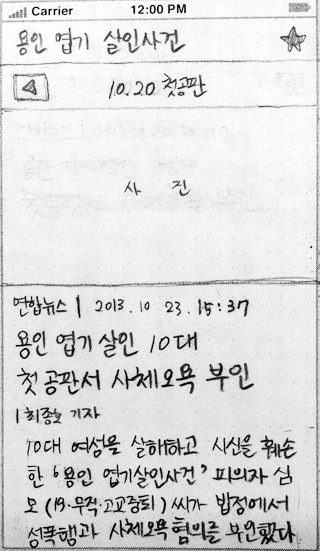 Carrier 12:00 PM
용인 엽기 살인사건
10.20 첫공판
사 진
연합뉴스 | 2013. 10 23. 15:37
용인 엽기 살인 10대
첫 공판서 사체오욕 부인
| 최종호 기자
10대 여성을 살해하고 시신을 훼손
한 '용인 엽기살인사건' 피의자 심
모 (19·무직·고교중퇴) 씨가 법정에서
성폭행과 사체오욕 혐의를 부인했다